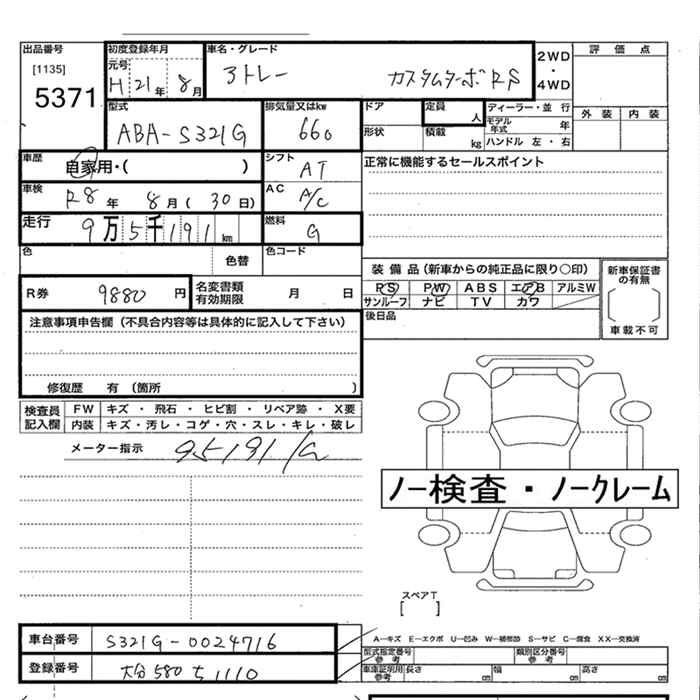 出品番号 初度登録年月 車名・グレード 2WD ・ 4WD 評価点
[1135] 元号
5371 H 21年 8月 アトレー カスタムターボRS
型式 排気量又はkw ドア 定員 人 ディーラー・並行 外装 内装
ABA-S321G 660 形状 積載 kg モデル年式 年
ハンドル 左・右
車歴 自家用・( ) シフト AT 正常に機能するセールスポイント
車検 R8年 8月(30日) AC A/C
走行 9万5千191km 燃料 G
色 色替 色コード
装備品(新車からの純正品に限り○印) 新車保証書の有無
R券 9880円 名変書類有効期限 月 日 PS PW ABS エアB アルミW
サンルーフ ナビ TV カワ
車載不可
注意事項申告欄(不具合内容等は具体的に記入して下さい) 後日品
修復歴 有(箇所 )
検査員記入欄 FW キズ・飛石・ヒビ割・リペア跡・X要
内装 キズ・汚レ・コゲ・穴・スレ・キレ・破レ
メーター指示 95191/G
ノー検査・ノークレーム
スペアT
[ ]
車台番号 S321G-0024716
A-キズ E-エクボ U-凹み W-補修跡 S-サビ C-腐食 XX-交換済
型式指定番号 参考 類別区分番号 参考
登録番号 大分580ち1110
車庫証明用 参考 長さ cm 幅 cm 高さ cm